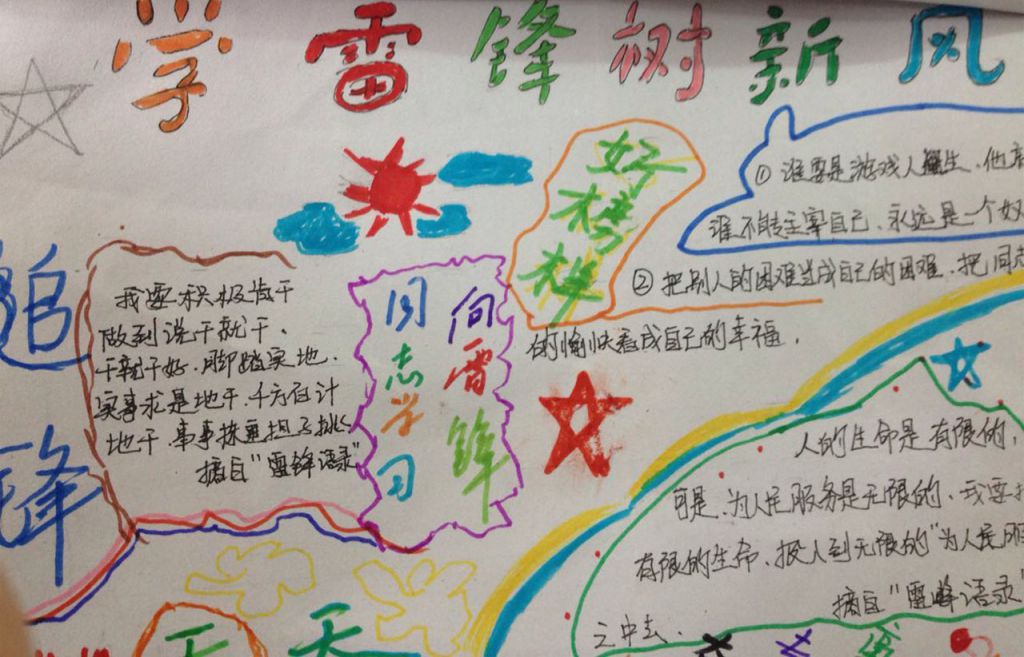 学雷锋树新风
追
锋
我要积极肯干
做到说干就干.
干就干好.脚踏实地.
实事求是地干.千方百计
地干 事事抹重担了挑
摘自"雷锋语录"
向雷锋
同志学习
好榜样
①谁要是游戏人生.他
谁不能主宰自己.永远是一个奴
②把别人的困难当成自己的困难.把同志
的愉快看成自己的幸福.
人的生命是有限的,
可是.为人民服务是无限的.我要
有限的生命.投入到无限的"为人民服
之中去.
摘自"雷峰语录"